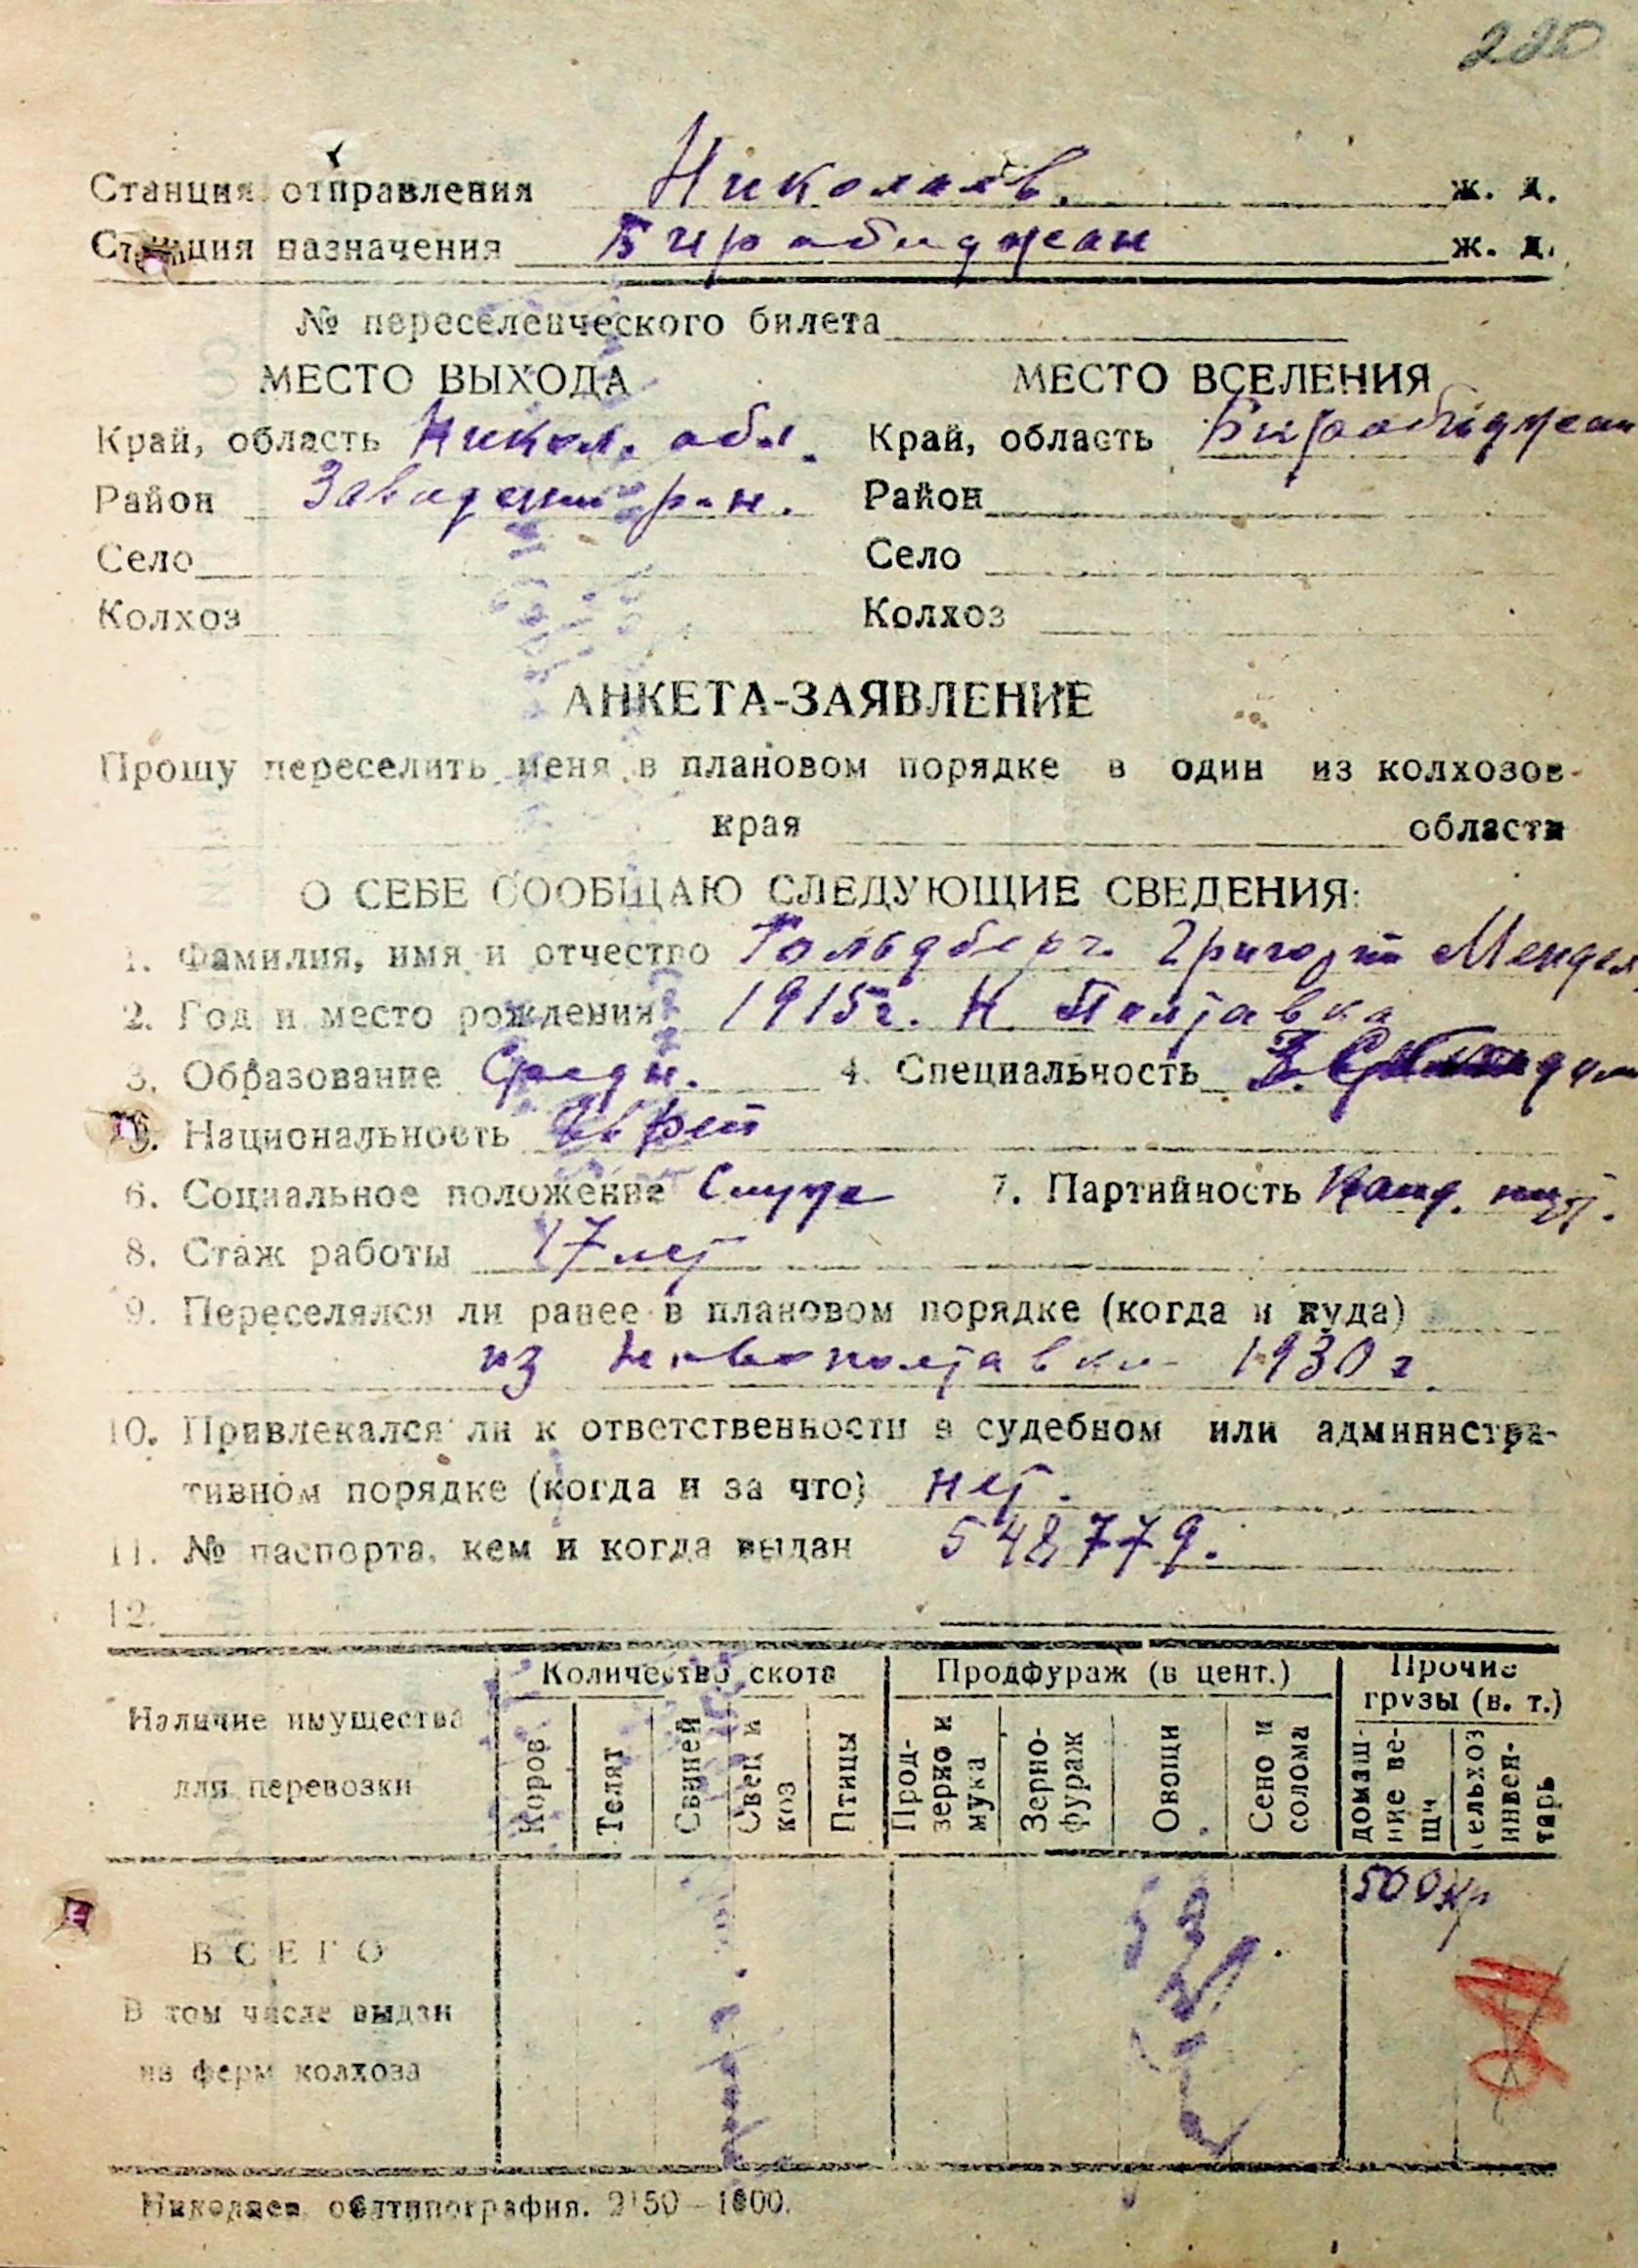 220
Станция отправления Николаев. ж. д.
Станция назначения Биробиджан ж. д.
№ переселенческого билета
МЕСТО ВЫХОДА МЕСТО ВСЕЛЕНИЯ
Край, область Никол. обл. Край, область Биробиджан
Район р-н. Район
Село Село
Колхоз Колхоз
АНКЕТА-ЗАЯВЛЕНИЕ
Прошу переселить меня в плановом порядке в один из колхозов
края области
О СЕБЕ СООБЩАЮ СЛЕДУЮЩИЕ СВЕДЕНИЯ:
1. Фамилия, имя и отчество Гольдберг. Григорий Мендел
2. Год и место рождения 1915г. Н Полтавка
3. Образование Средн. 4. Специальность
5. Национальность Еврей
6. Социальное положение Служа 7. Партийность Канд. парт.
8. Стаж работы 17 лет
9. Переселялся ли ранее в плановом порядке (когда и куда)
из Новополтавки 1930 г.
10. Привлекался ли к ответственности в судебном или администра-
тивном порядке (когда и за что) нет.
11. № паспорта, кем и когда выдан 548779.
12.
Наличие имущества для перевозки
Количество скота Продфураж (в цент.) Прочие грузы (в. т.)
Коров Телят Свиней Овец и коз Птицы Прод-зерно и мука Зерно-фураж Овощи Сено и солома домаш-ние ве-щи сельхоз инвен-тарь
500 кг
ВСЕГО
В том числе выдан
из ферм колхоза
Николаев, облтипография. 2150—1000.